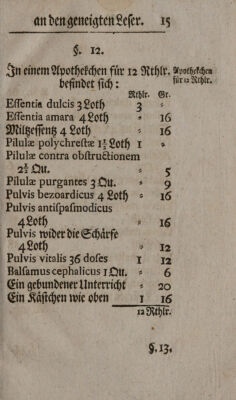 an den geneigten Leser. 15
§. 12.
In einem Apothekchen für 12 Rthlr. Apothekchen
befindet sich: für 12 Rthlr.
Rthlr. Gr.
Essentia dulcis 3 Loth 3 -
Essentia amara 4 Loth - 16
Miltzessentz 4 Loth - 16
Pilulæ polychrestæ 1½ Loth 1 -
Pilulæ contra obstructionem
2½ Qu. - 5
Pilulæ purgantes 3 Qu. - 9
Pulvis bezoardicus 4 Loth - 16
Pulvis antispasmodicus
4 Loth - 16
Pulvis wider die Schärfe
4 Loth - 12
Pulvis vitalis 36 doses 1 12
Balsamus cephalicus 1 Qu. - 6
Ein gebundener Unterricht - 20
Ein Kästchen wie oben 1 16
12 Rthlr.
§. 13.